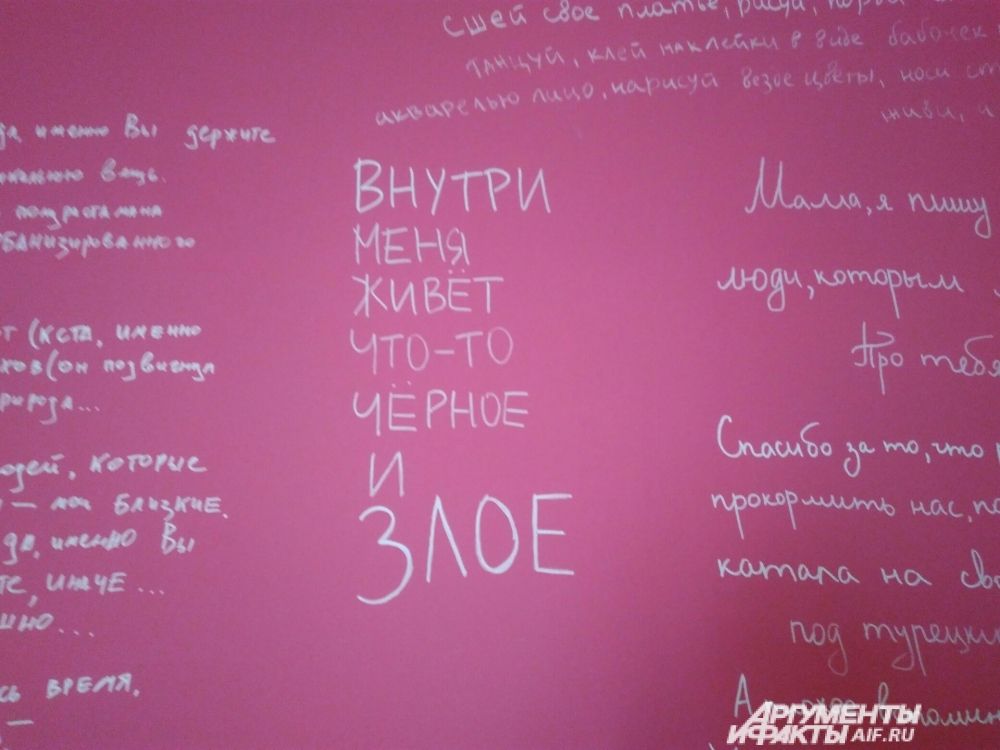 сшей свое платье, рисуй,
танцуй, клей наклейки в виде бабочек
акварелью лицо, нарисуй везде цветы, носи
живи,
именно Вы держите
вещь.
подростамана
т (кста, именно
ков (он подвигнул
природа...
людей, которые
— мои близкие.
да, именно Вы
те, иначе ...
шно...
сь время,
—
ВНУТРИ
МЕНЯ
ЖИВЁТ
ЧТО-ТО
ЧЁРНОЕ
И
ЗЛОЕ
Мама, я пишу
люди, которым
Про тебя
Спасибо за то, что
прокормить нас,
катала на
под турецким
А
АРГУМЕНТЫ
И ФАКТЫ AIF.RU